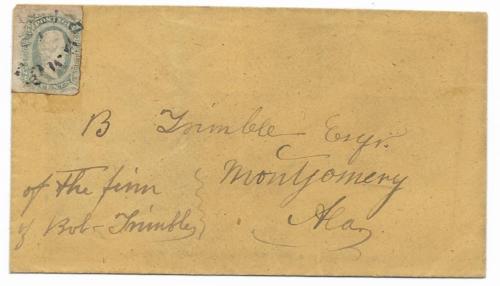 B Trimble Esqr.
Montgomery
Ala
of the firm
of Bob Trimble